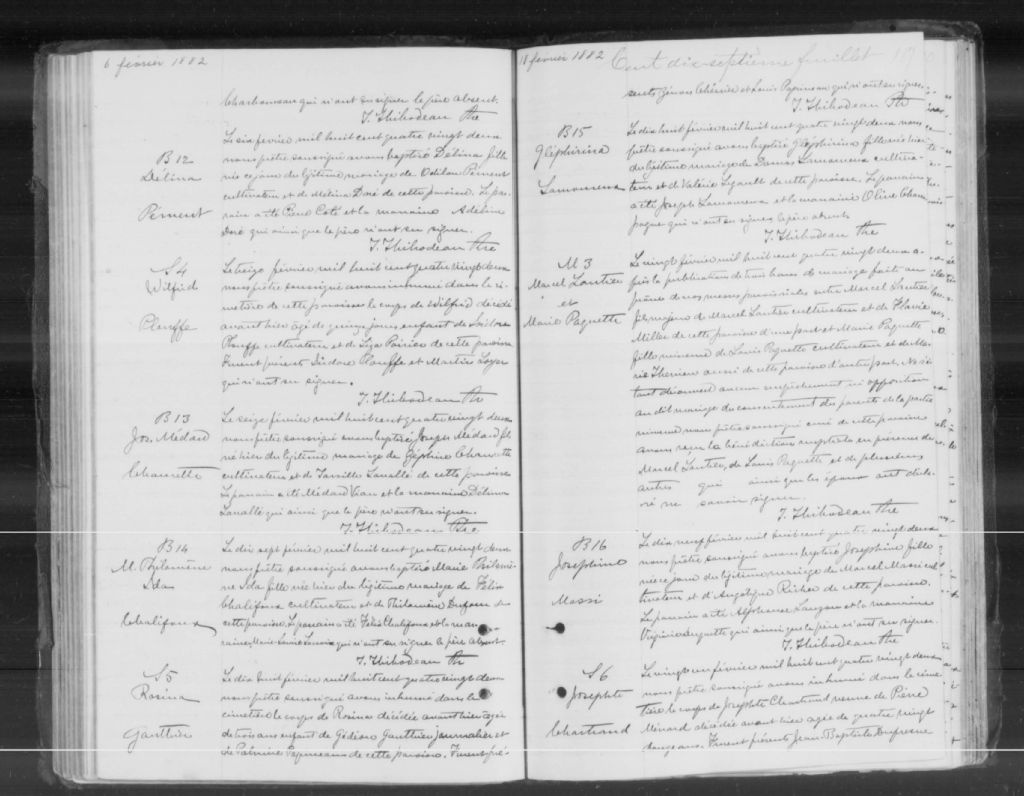 6 février 1882
Charbonneau qui n'ont su signer le père absent.
T. Thibodeau Ptre
B 12
Délina
Piment
Le six février mil huit cent quatre vingt deux
nous prêtre soussigné avons baptisé Délina fille
née ce jour du légitime mariage de Odilon Piment
cultivateur et de Mélina Doré de cette paroisse. Le par-
rain a été Pierre Coté et la marraine Adeline
Doré qui ainsi que le père n'ont su signer.
T. Thibodeau Ptre
S 4
Wilfrid
Plouffe
Le treize février mil huit cent quatre vingt deux
nous prêtre soussigné avons inhumé dans le ci-
metière de cette paroisse le corps de Wilfrid décédé
avant hier âgé de quinze jours enfant de Isidore
Plouffe cultivateur et de Poirier de cette paroisse
Furent présents Isidore Plouffe et Martin
qui n'ont su signer.
T. Thibodeau Ptre
B 13
Jos. Médard
Charette
Le seize février mil huit cent quatre vingt deux
nous prêtre soussigné avons baptisé Joseph Médard fils
né hier du légitime mariage de Charette
cultivateur et de Lavallé de cette paroisse
Le parrain a été Médard et la marraine Délima
Lavallé qui ainsi que le père n'ont su signer.
T. Thibodeau Ptre
B 14
M. Philomène
Ida
Chalifoux
Le dix sept février mil huit cent quatre vingt deux
nous prêtre soussigné avons baptisé Marie Philomè-
ne Ida fille née hier du légitime mariage de Félix
Chalifoux cultivateur et de Philomène Dufour de
cette paroisse. Le parrain a été Félix Chalifoux et la mar-
raine Marie qui n'ont su signer le père absent.
T. Thibodeau Ptre
S 5
Rosina
Gauthier
Le dix huit février mil huit cent quatre vingt deux
nous prêtre soussigné avons inhumé dans le
cimetière le corps de Rosina décédée avant hier agée
de trois ans enfant de Gédéon Gauthier journalier et
de Palmire Papineau de cette paroisse. Furent pré-
18 février 1882
Cent dix-septième feuillet 117
sents Chénier et Louis Papineau qui n'ont su signer.
T. Thibodeau Ptre
B 15
Gléphirina
Lamoureux
Le dix huit février mil huit cent quatre vingt deux nous
prêtre soussigné avons baptisé Gléphirina fille née hier
du légitime mariage de Damas Lamoureux cultiva-
teur et de Valérie Legault de cette paroisse. Le parrain
a été Joseph Lamoureux et la marraine Olive Cham-
pagne qui n'ont su signer le père absent.
T. Thibodeau Ptre
M 3
Marcel Lautier
et
Marie Paquette
Le vingt février mil huit cent quatre vingt deux a-
près la publication de trois bans de mariage faite au
prône de nos messes paroissiales entre Marcel Lautier
fils majeur de Marcel Lautier cultivateur et de Flavie
Miller de cette paroisse d'une part et Marie Paquette
fille mineure de Louis Paquette cultivateur et de Ma-
rie Therrien aussi de cette paroisse d'autre part. Ne s'é-
tant découvert aucun empêchement ni opposition
au dit mariage du consentement des parents de la partie
mineure nous prêtre soussigné curé de cette paroisse
avons reçu la bénédiction nuptiale en présence de
Marcel Lautier, de Louis Paquette et de plusieurs
autres qui ainsi que les époux ont décla-
ré ne savoir signer.
T. Thibodeau Ptre
B 16
Josephine
Massi
Le dix neuf février mil huit cent quatre vingt deux
nous prêtre soussigné avons baptisé Josephine fille
née ce jour du légitime mariage de Marcel Massi cul-
tivateur et d'Angelique Richer de cette paroisse.
Le parrain a été Alphonse Lauzon et la marraine
Virginie Suquette qui ainsi que le père n'ont su signer.
T. Thibodeau Ptre
S 6
Josephte
Chartrand
Le vingt un février mil huit cent quatre vingt deux
nous prêtre soussigné avons inhumé dans le cime-
tière le corps de Josephte Chartrand veuve de Pierre
Ménard décédée avant hier agée de quatre vingt
douze ans. Furent présents Jean Baptiste Dufresne